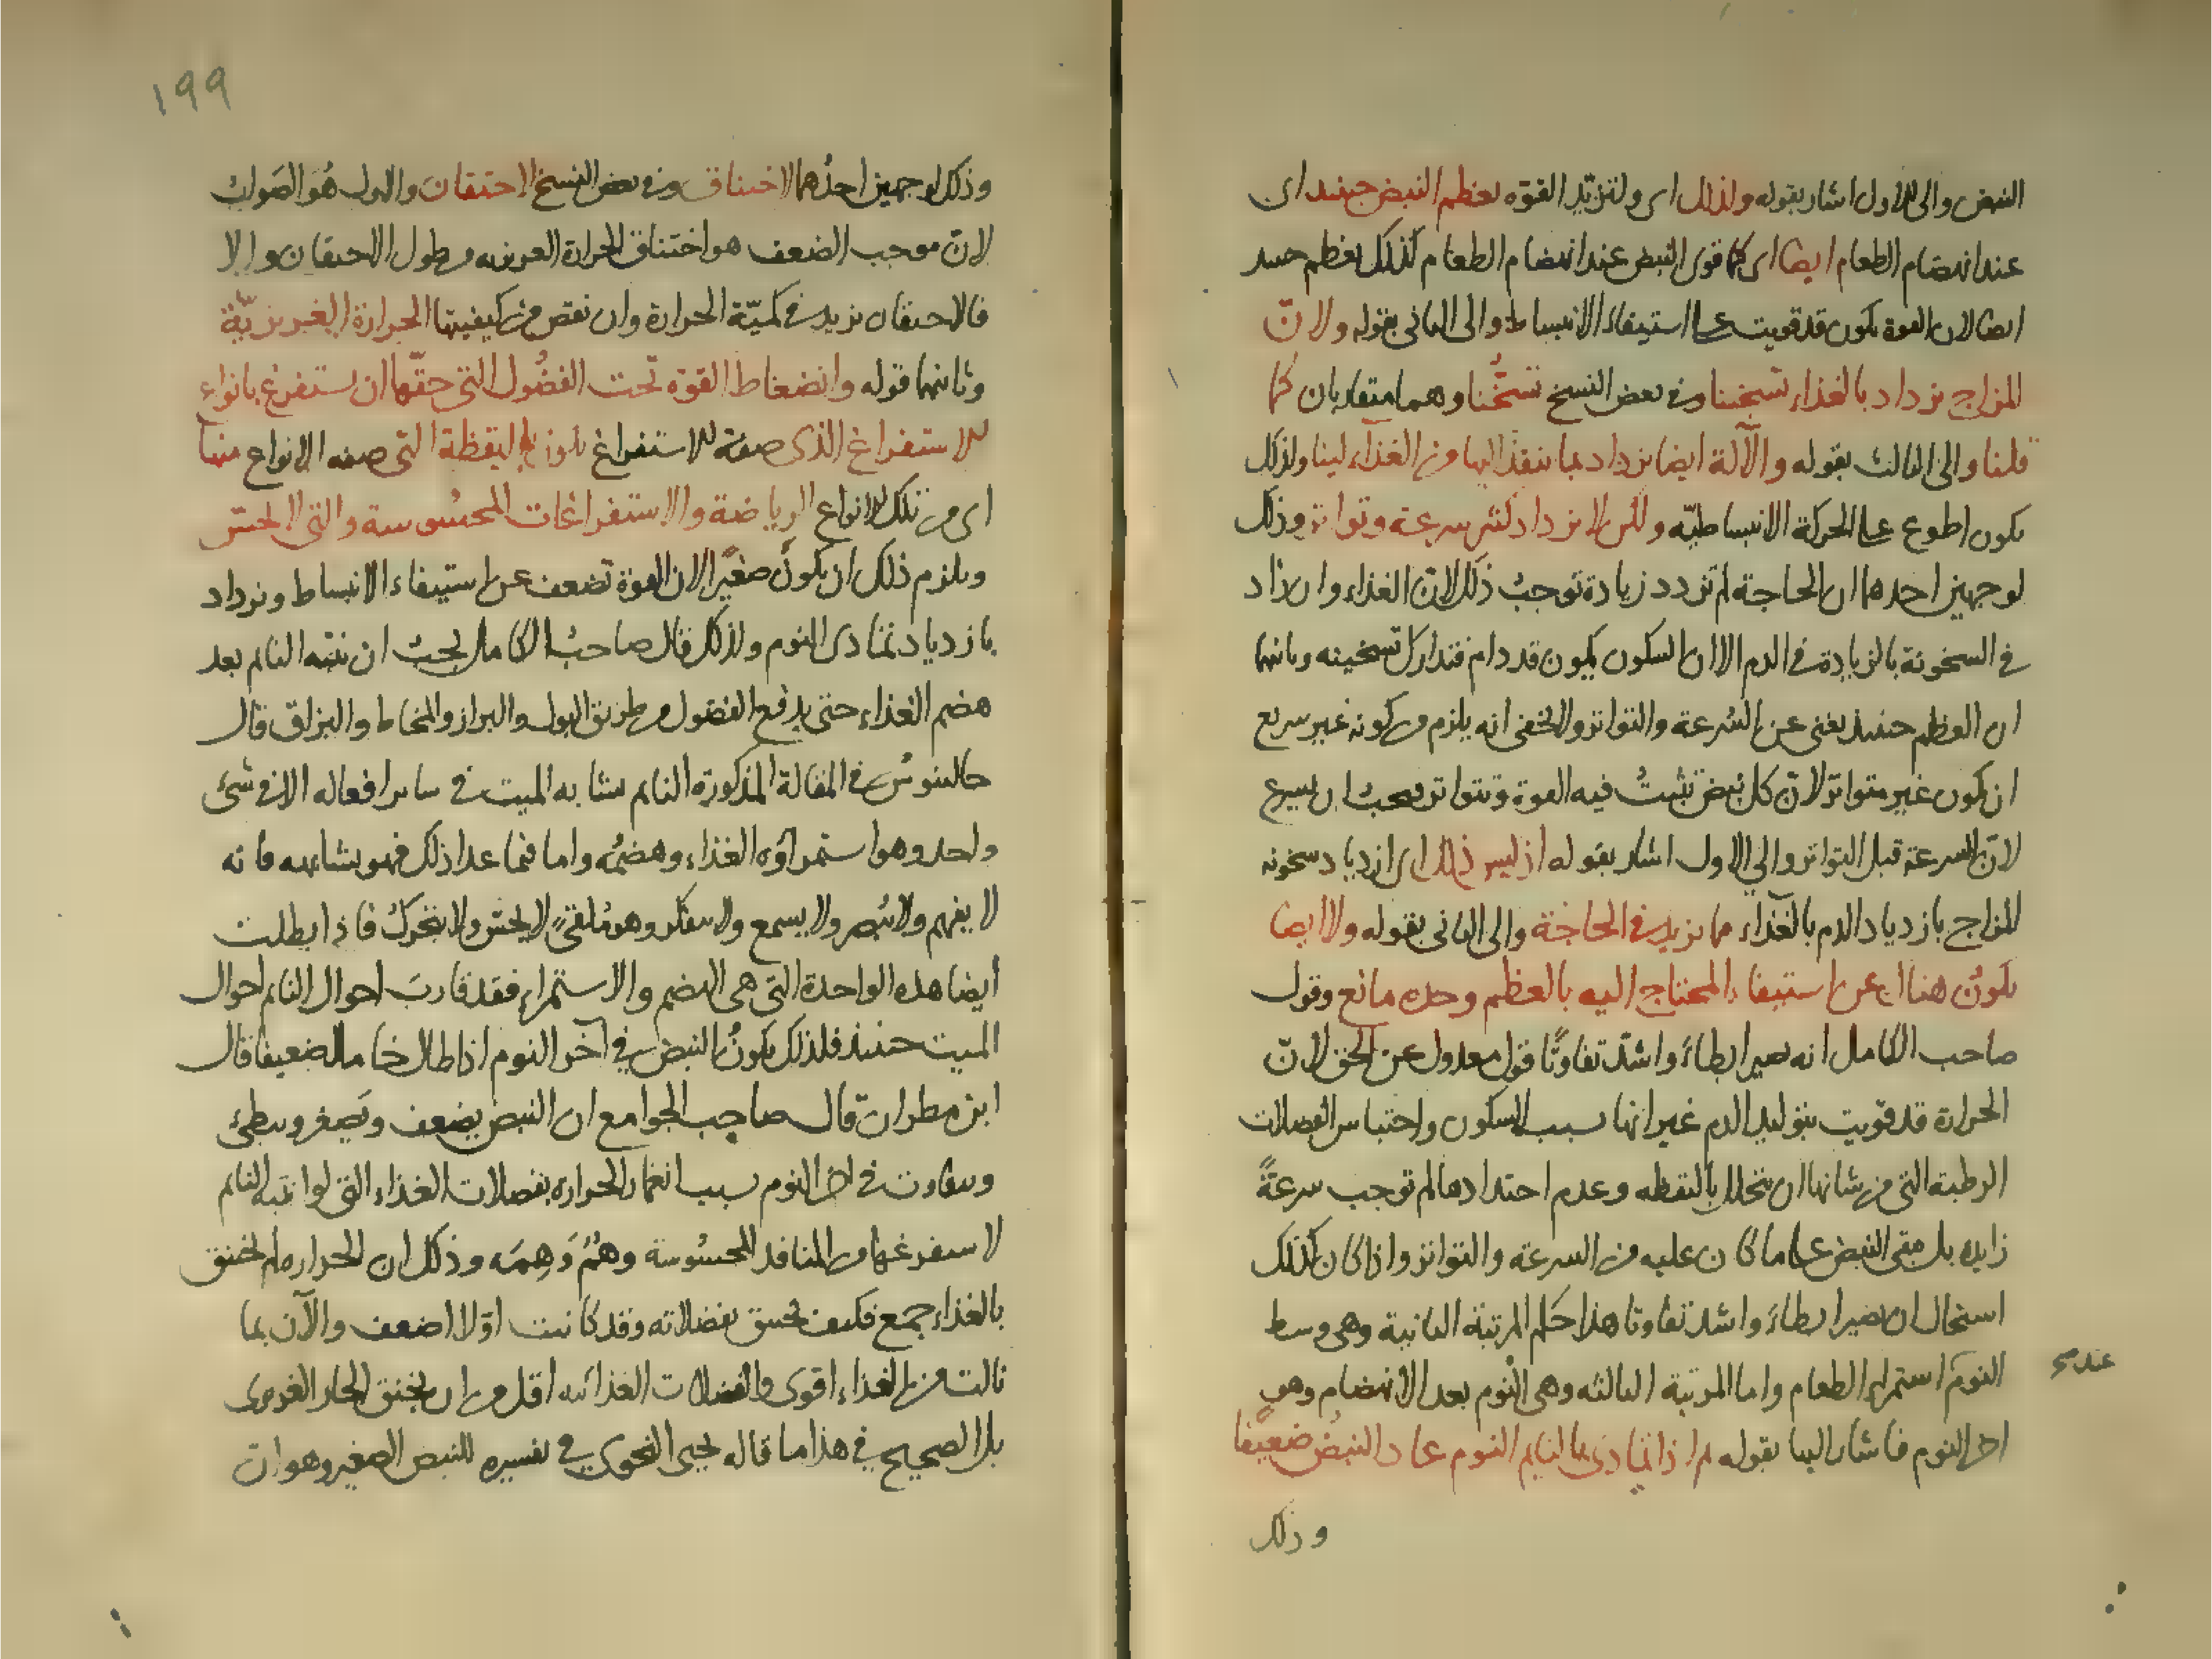 النبض والى الاول اشار بقوله ولذلك اى ولتزيّد القوّه يعظم النبض حينئد اى
عند انهضام الطعام ايضا اى كما قوى النبض عند انهضام الطعام كذلك يعظم حينئد
ايضا لان القوة يكون قد قويت على استيفاء الانبساط والى الثانى بقوله ولانّ
المزاج يزداد بالغذاء تسخينا وفى بعض النسخ تسخُّنا وهما متقاربان كما
قلنا والى الثالث بقوله والآلة ايضا يزداد بما ينفذ اليها من الغذاء لينا ولذلك
يكون اطوع على الحركة الانبساطيّه ولكن لا يزداد كثير سرعة وتواتر وذلك
لوجهين احدهما ان الحاجة لم تزدد زيادة توجبُ ذلك لانّ الغذاء وان زاد
فى السخونة بالزيادة فى الدم الا ان السكون يكون قد دام فتدارك تسخينه وثانيها
ان العظم حينئد يغنى عن السُرعة والتواتر والخفى انه يلزم من كونه غير سريع
ان يكون غير متواتر لانّ كل نبض تثبتُ فيه القوة وتتواتر يجب ان يسرع
لانّ السرعة قبل التواتر والى الاول اشار بقوله اذ ليس ذلك اى ازدياد سخونه
المزاج بازدياد الدم بالغذاء مما يزيد فى الحاجة والى الثانى بقوله ولا ايضا
يكونُ هناك عن استيفاء المحتاج اليه بالعظم وحده مانع وقول
صاحب الكامل انه يصير ابطاءَ واشدّ تفاوتًا قول معدول عن الحق لانّ
الحرارة قد قويت بتوليد الدم غير انها بسبب السكون واحتباس الفضلات
الرطبة التى من شانها ان يتحلل باليقظه وعدم احتدادها لم توجب سرعةً
زايده بل بقى النبض على ما كان عليه من السرعة والتواتر واذا كان كذلك
استحال ان يصير ابطاءَ واشد تفاوتا هذا حكم المرتبة الثانية وهى وسط
النوم استمراء الطعام واما المرتبة الثالثه وهى النوم بعد الانهضام وهو
عند صح
اخر النوم فاشار اليها بقوله ثم اذا تمادى بالنايم النوم عاد النبضُ ضعيفًا
وذلك
١٩٩
وذلك لوجهين احدُهما لاختناق وفى بعض النسخ لاحتقان والاول هُوَ الصَوابُ
لانّ موجب الضعف هو اختناق الحرارة الغريزيه من طول الاحتقان والا
فالاحتقان يزيد فى كميّة الحرارة وان نقص من كيفيتها الحرارة الغريزيّة
وثانيهما قوله وانضغاط القوّه تحت الفضُول التى حقّها ان يستفرغ بانواع
للاستفراغ الذى صفة للاستفراغ يكون باليقظة التى صفه الانواع منها
اى من تلك الانواع الرياضة والاستفراغات المحسُوسة والتى لا تحسّ
ويلزم ذلك ان يكونَ صغيرًا لان القوة تضعف عن استيفاء الانبساط ويزداد
بازدياد تمادى النوم ولذلك قال صاحبُ الكامل يجبُ ان ينتبه النايم بعد
هضم الغذاء حتى يدفع الفضول من طريق البول والبراز والمخاط والبزاق قال
جالينوسُ فى المقالة المذكورة النايم مشابه للميت فى ساير افعاله الا فى شئ
واحد وهو استمراؤه الغذاء وهضمُه واما فيما عدا ذلك فهو يشابهه فانه
لا يفهم ولا يُبصر ولا يسمع ولا يتفكر وهو مُلقىً لا يحسّ ولا يتحركُ فاذا بطلت
ايضا هذه الواحدة التى هى الهضم والاستمراء فقد قاربَ احوال النايم احوال
الميت حينئد فلذلك يكونُ النبض فى آخر النوم اذا طال خاملا ضعيفا قال
ابن مطران قال صاحب الجوامع ان النبض يضعف ويَصغر ويبطئ
ويتفاوت فى اخر النوم بسبب انغمار الحراره بفضلات الغذاء التى لو انتبه النايم
لاستفرغها من المنافذ المحسُوسة وهُمْ وَهِمَه وذلك ان الحراره لم تختنق
بالغذاء جمع فكيف تختنق بفضلاته وقد كانت اوّلا اضعف والآن بما
نالت من الغذاء اقوى والفضلات الغذائيه اقل من ان يخنق الحار الغريزى
بل الصحيح فى هذا ما قاله يحيى النحوى فى تفسيره للنبض الصغير وهو ان